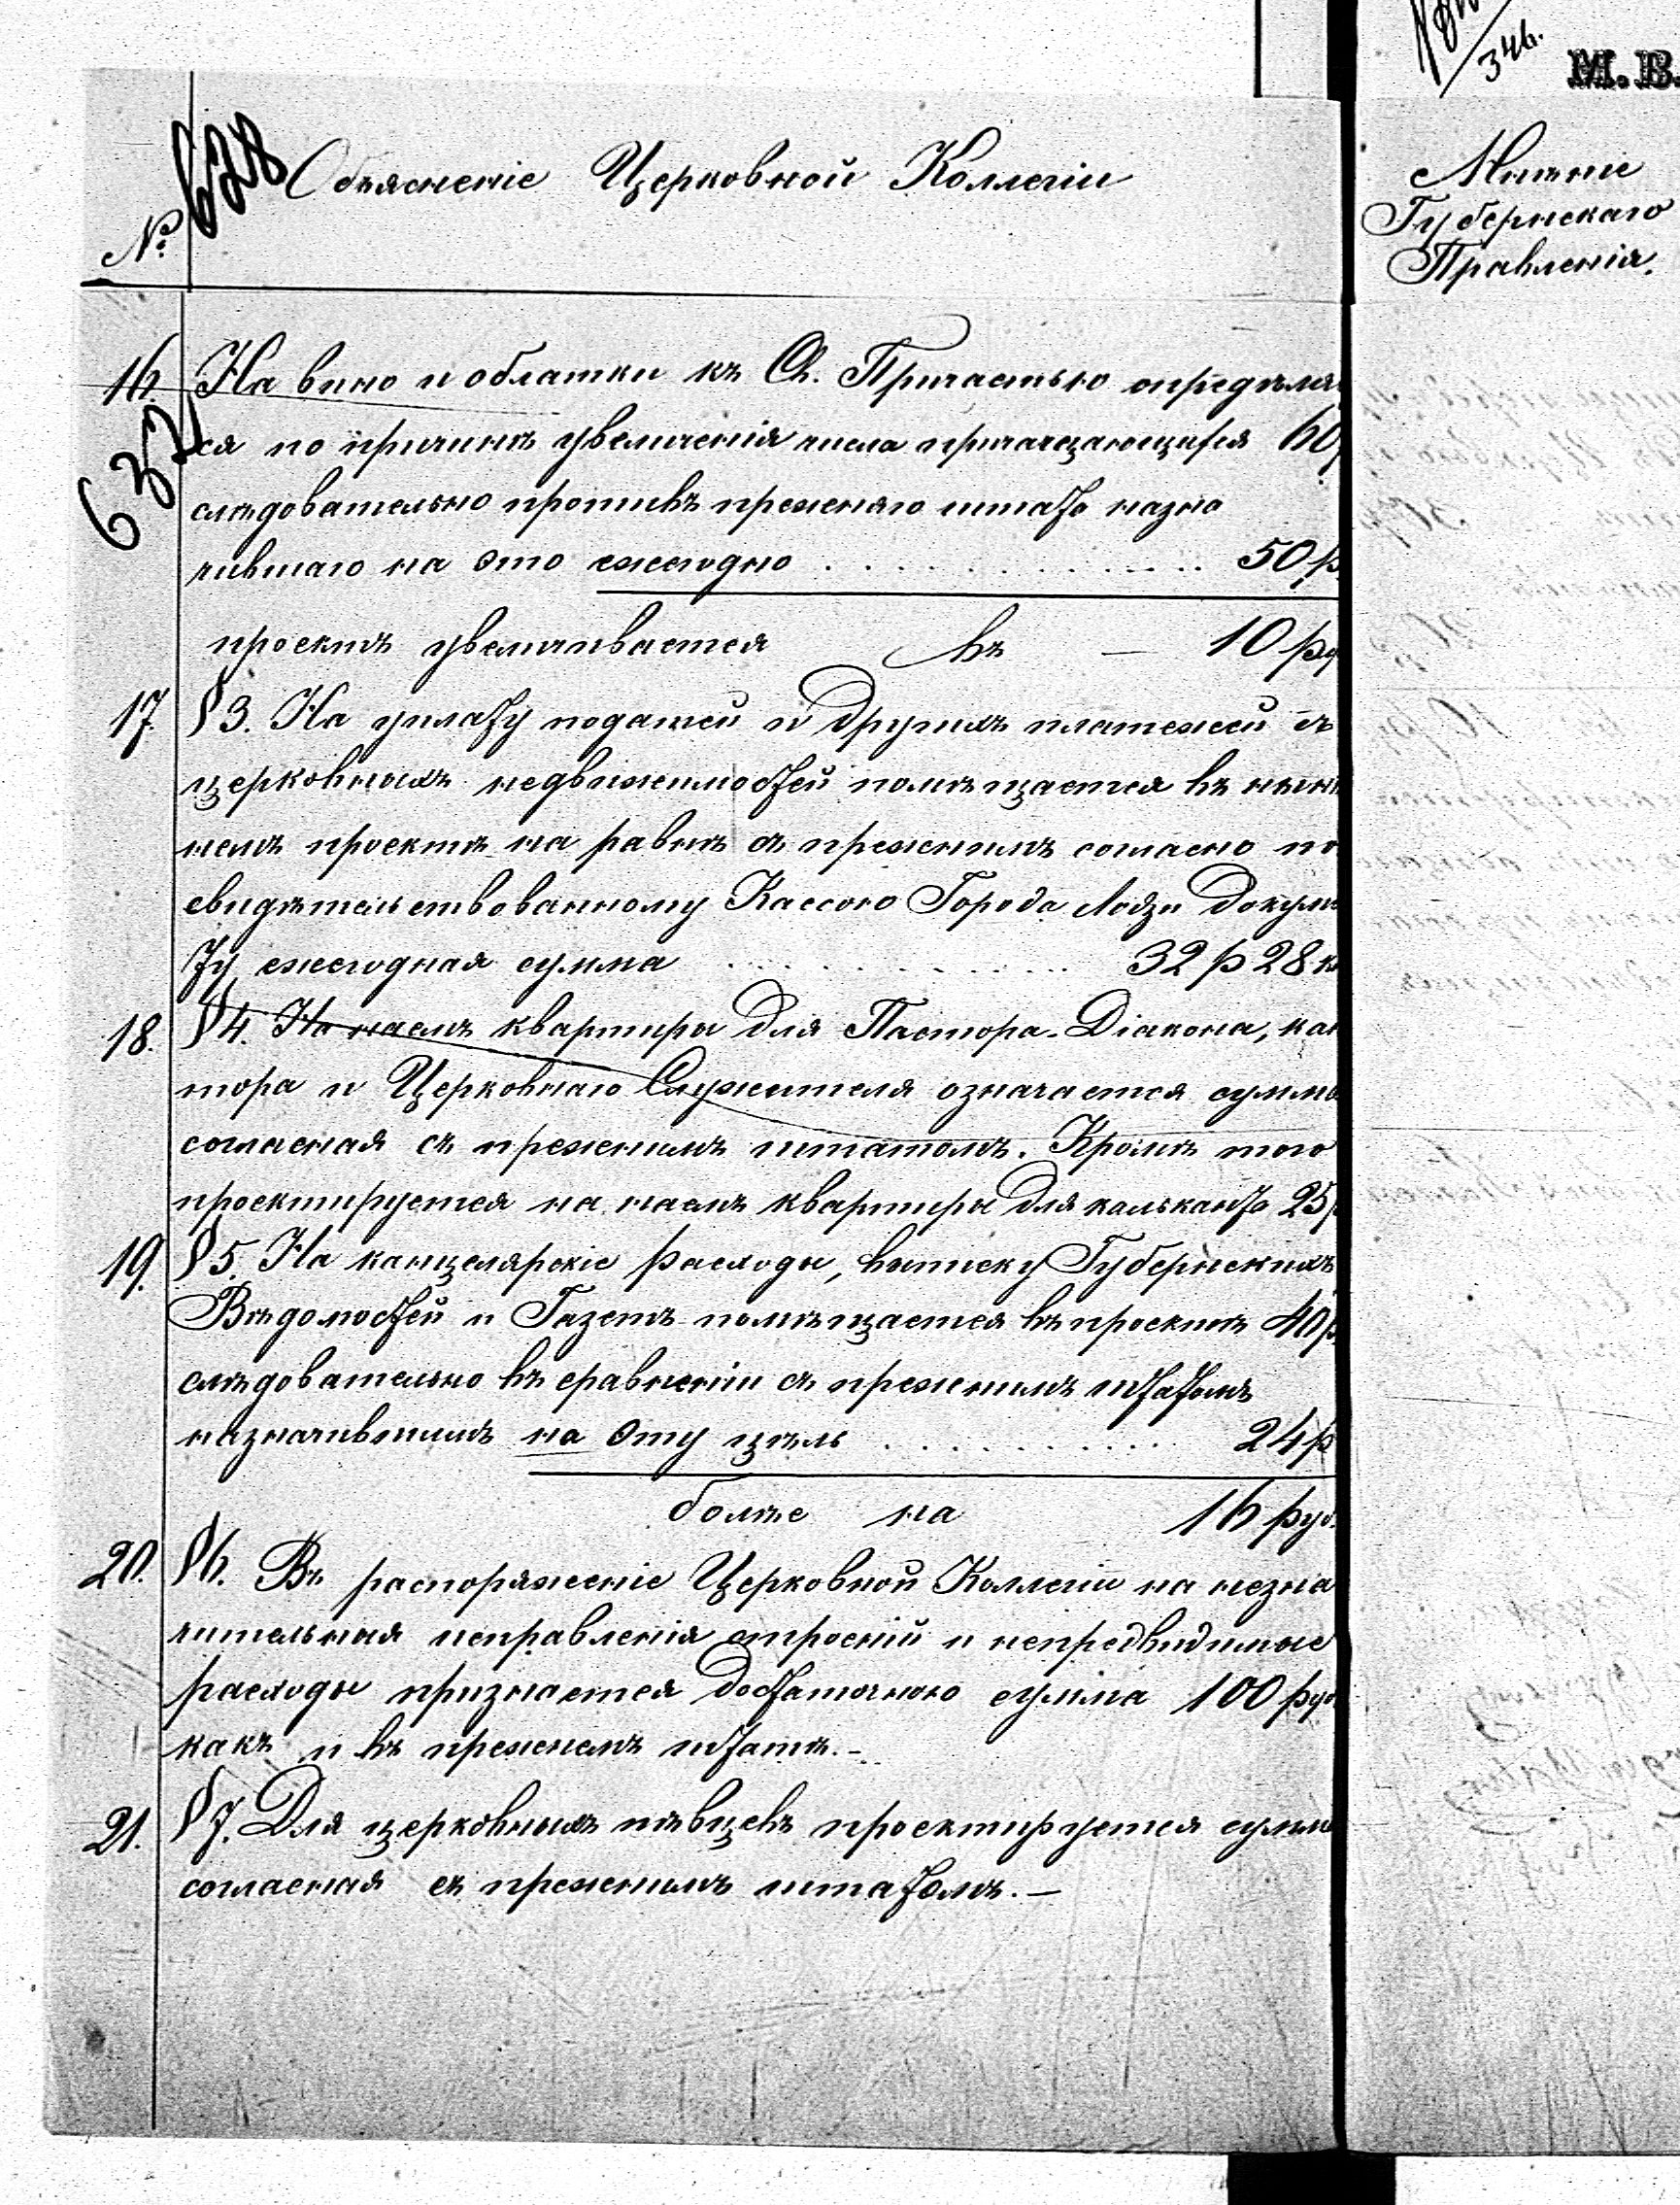 346.
М. В.
628
Объясненіе Церковной Коллегіи
№
Мнѣніе
Губернскаго
Правленія.
16. На вино и облатки къ Св. Причастью опредѣляе
632
ся по причинѣ увеличенія числа причащающихся 60
слѣдовательно противъ прежняго штата назна
чившаго на это ежегодно . . . . . . . . . . . . . 50 р.
проектъ увеличивается въ — 10 ру
17. § 3. На уплату податей и другихъ платежей съ
церковныхъ недвижимостей помѣщается въ нынѣ
немъ проектѣ на равнѣ съ прежнимъ согласно по
свидѣтельствованному Кассою Города Лодзи докуме
ту ежегодная сумма . . . . . . . . . . 32 р 28 к
18. § 4. На наемъ квартиры для Пастора-Діакона, кан
тора и Церковнаго Служителя означается сумма
согласная съ прежнимъ штатомъ. Кромѣ того
проектируется на наемъ квартиры для кальканта 25 р
19. § 5. На канцелярскіе расходы, выписку Губернскихъ
Вѣдомостей и Газетъ помѣщается въ проектѣ 40 р
слѣдовательно въ сравненіи съ прежнимъ штатомъ
назначившимъ на эту цѣль . . . . . . . . . . . 24 р
болѣе на 16 руб.
20. § 6. Въ распоряженіе Церковной Коллегіи на незна
чительныя исправленія строеній и непредвидимые
расходы признается достаточною сумма 100 руб
какъ и въ прежнемъ штатѣ.—
21. § 7. Для церковныхъ пѣвцевъ проектируется сумма
согласная съ прежнимъ штатомъ.—